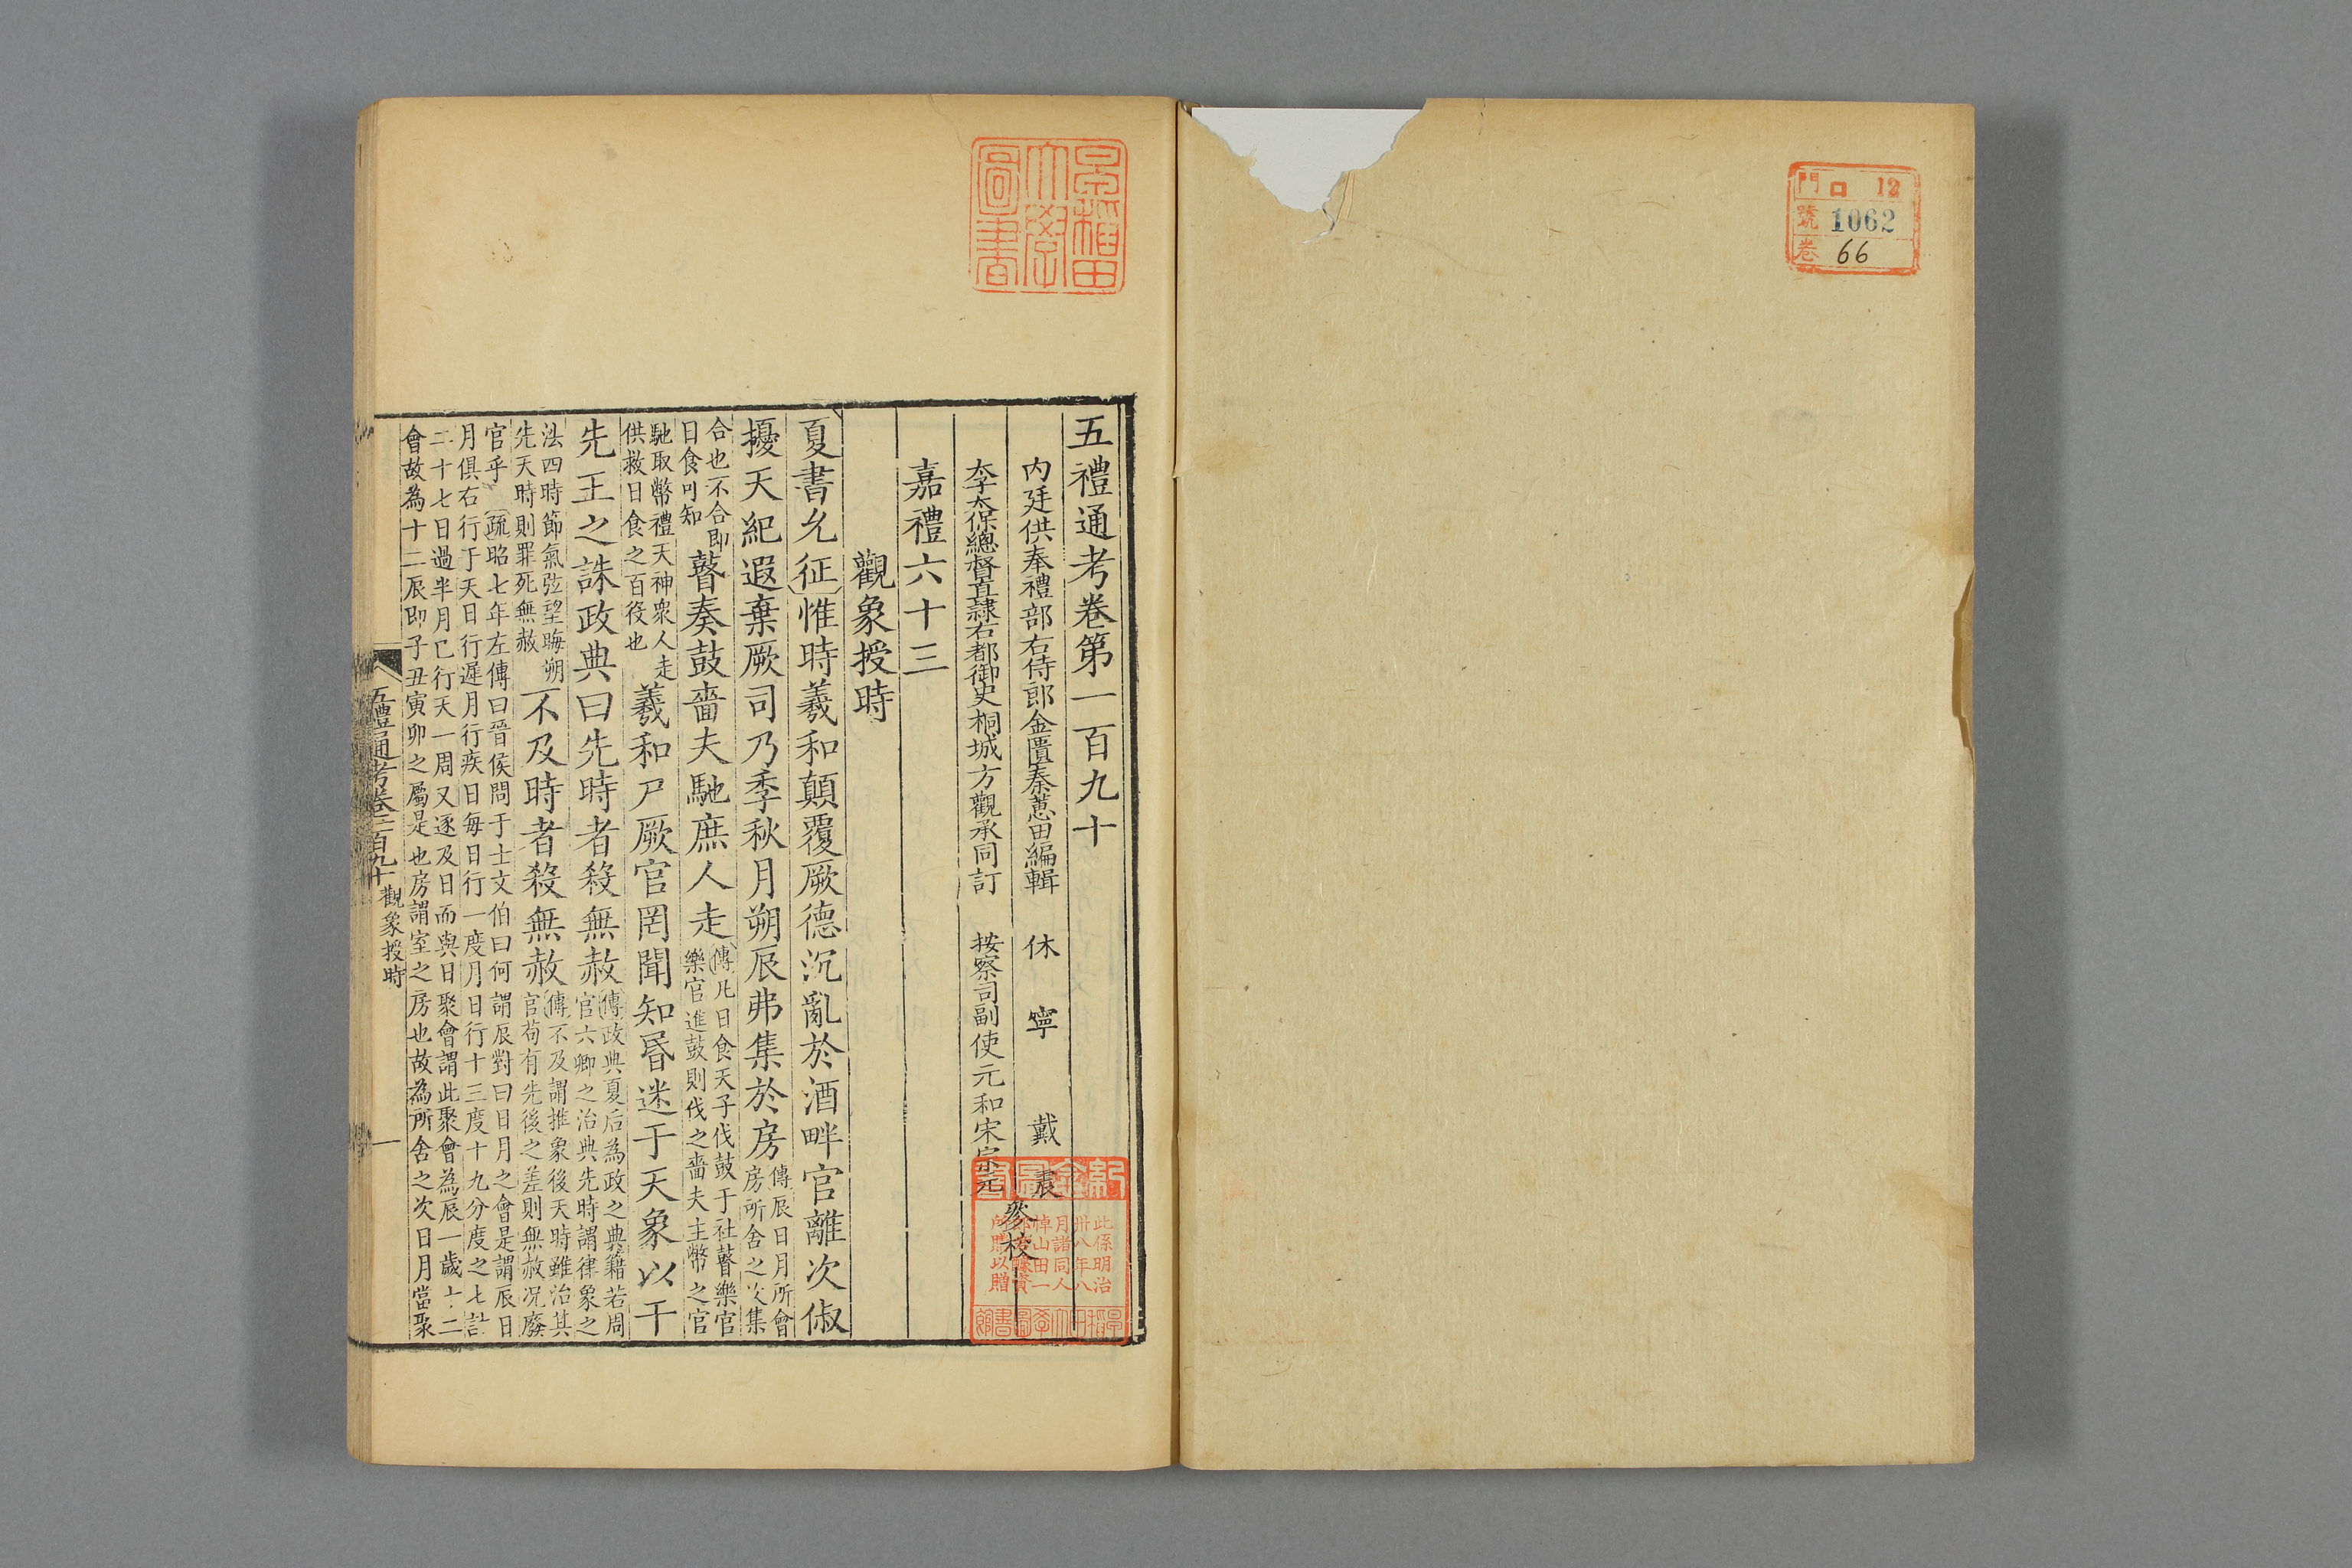 門 口 12
號 1062
卷 66
早稻田
大學
圖書
五禮通考卷第一百九十
内廷供奉禮部右侍郎金匱秦蕙田編輯 休寧戴震
李太保總督直隷右都御史桐城方觀承同訂 按察司副使元和宋宗元
叅校
嘉禮六十三
觀象授時
夏書允征惟時羲和顛覆厥德沉亂於酒畔官離次俶
擾天紀遐棄厥司乃季秋月朔辰弗集於房
傳辰日月所會
房所舍之次集
合也不合即
日食可知
瞽奏鼓嗇夫馳庶人走
傳凡日食天子伐鼓于社瞽樂官
樂官進鼓則伐之嗇夫主幣之官
馳取幣禮天神衆人走
供救日食之百役也
羲和尸厥官罔聞知昏迷于天象以干
先王之誅政典曰先時者殺無赦
傳政典夏后為政之典籍若周
官六卿之治典先時謂律象之
法四時節氣弦望晦朔
先天時則罪死無赦
不及時者殺無赦
傳不及謂推象後天時雖治其
官苟有先後之差則無赦况廢
官乎 疏昭七年左傳曰晉侯問于士文伯曰何謂辰對曰日月之會是謂辰日
月俱右行于天日行遲月行疾日每日行一度月日行十三度十九分度之七計
二十七日過半月已行天一周又逐及日而與日聚會謂此聚會為辰一歲十二
會故為十二辰即子丑寅卯之屬是也房謂室之房也故為所舍之次日月當聚
五禮通考卷一百九十 觀象授時 一
此係明治
卅八年八
月諸同人
悼山田一
以贈